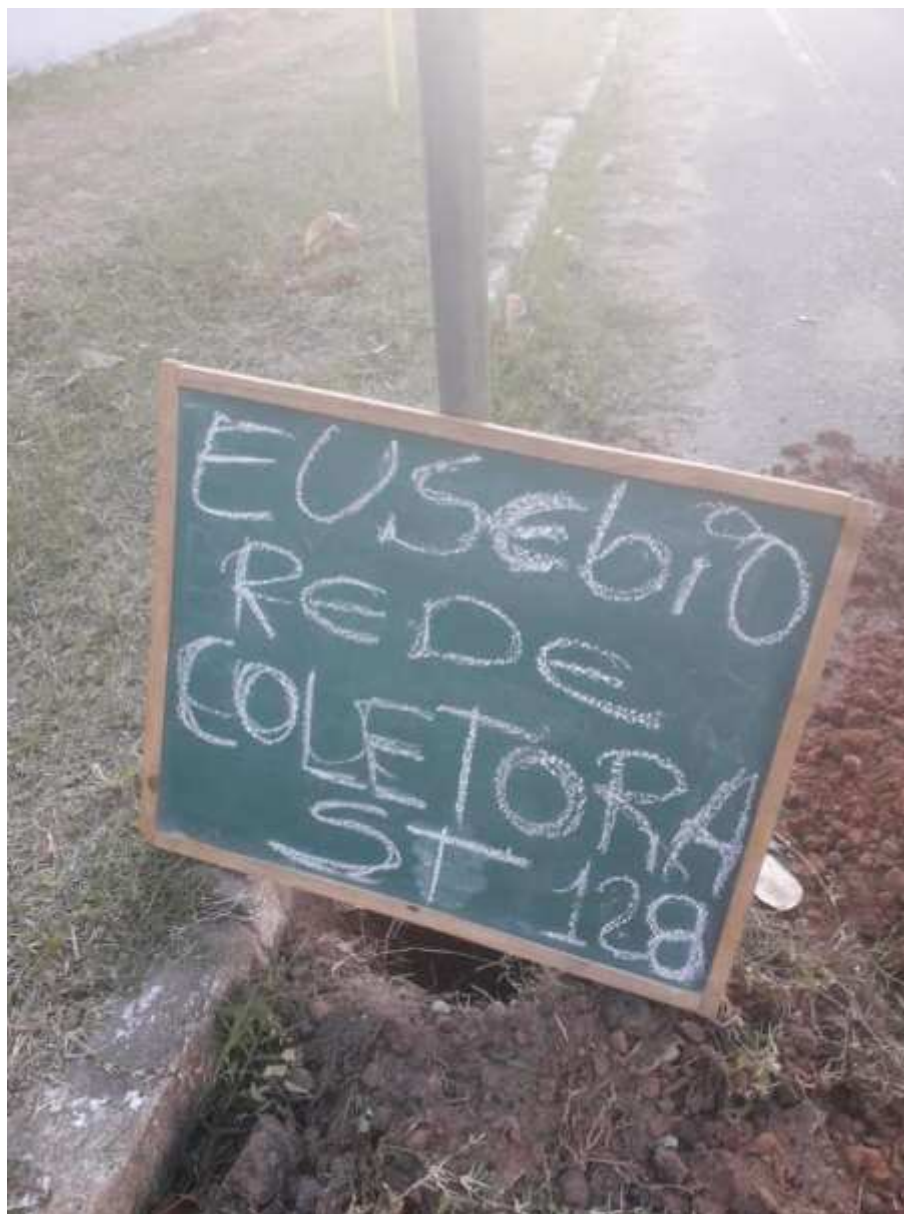 EUSEbiO
REDE
COLETORA
ST 128